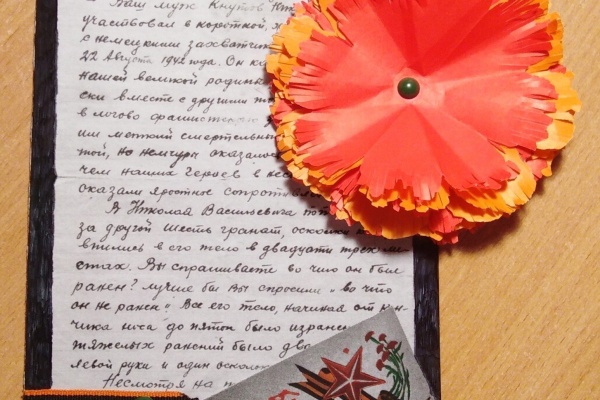 Ваш муж Кнутов Ник
участвовал в короткой, 
с немецкими захватчи
22 Августа 1942 года. Он ка
нашей великой родины
ски вместе с другими
в логово фашистско
или меткий смертельны
той, но немчуры оказалос
чем наших Героев в нес
оказали яростное сопротив
Я Николай Васильевича поп
за другой шесть гранат, осколки к
впились в его тело в двадцати трех ме-
стах. Вы спрашиваете во что он был
ранен? лучше бы Вы спросили "во что
он не ранен". Все его тело, начиная от кон-
чика носа до пяток было изранен
тяжелых ранений было дв
левой руки и один осколо
Несмотря на